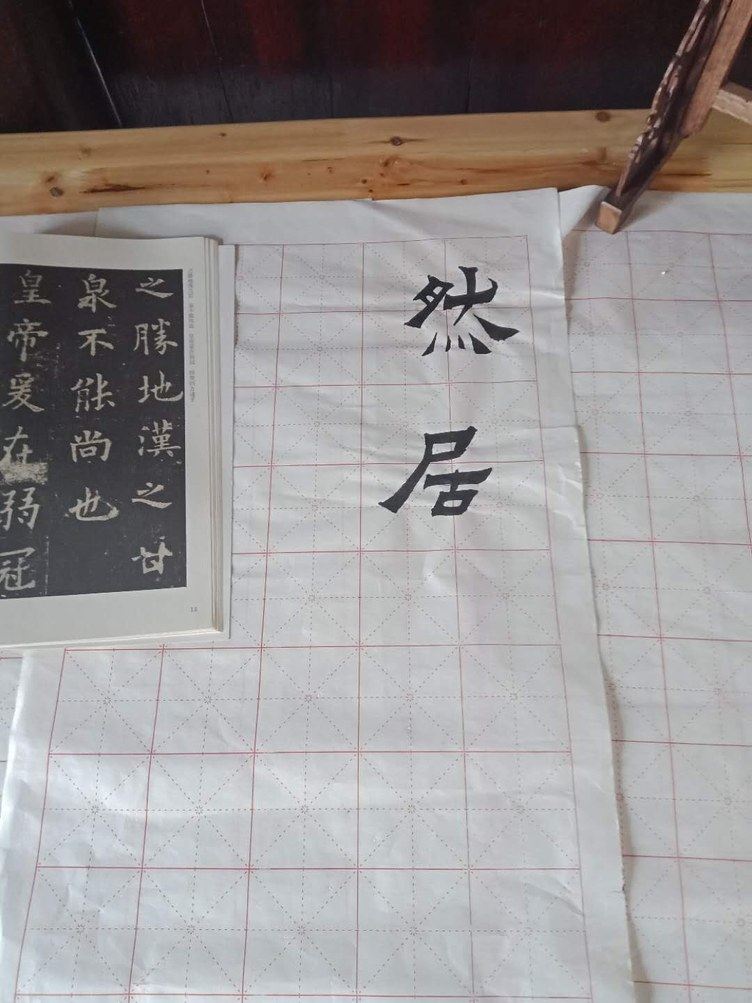 然居
之勝地漢之甘
泉不能尚也
皇帝爰在弱冠
12